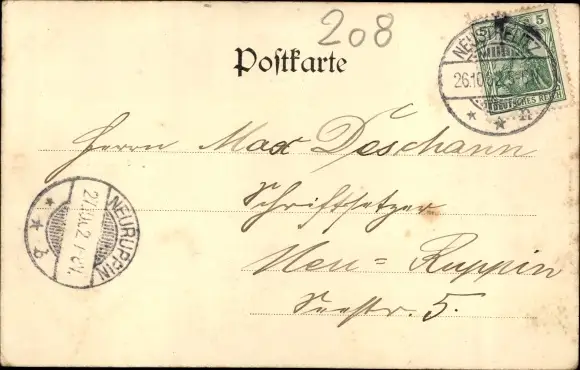 208
5
Postkarte
NEUSTRELITZ
26.10.02.5-6N.
DEUTSCHES REICH
Herrn Max Deschann
Schriftsetzer
Neu=Ruppin
Seestr. 5.
NEURUPPIN
b